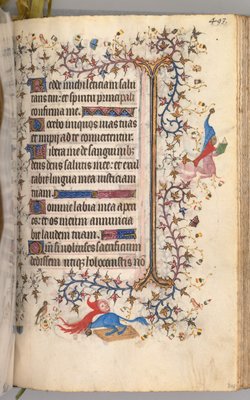 Redde michi leticiam salu
taris tui: et spiritu principali
confirma me.
Docebo iniquos vias tuas
et impii ad te convertentur.
Libera me de sanguinib
deus deus salutis mee: et exul
tabit lingua mea iusticiam
tuam.
Domine labia mea aperi
es: et os meum annuncia
bit laudem tuam.
Qm si voluisses sacrificium
dedissem utiqz: holocaustis no